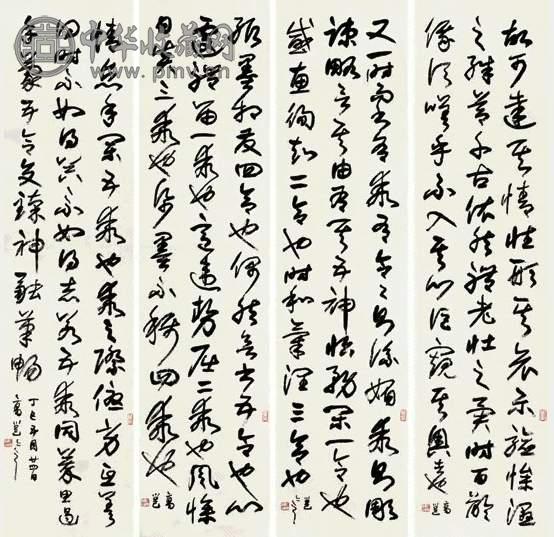 中华收藏网
www.pmv.cn
故可達其情性形其哀樂驗燥濕
之殊節千古依然體老壯之異時百齡
俄頃嗟乎不入其門詎窺其奧者也
又一時而書有乖有合合則流媚乖則彫
疏略言其由各有其五神怡務閑一合也
感惠徇知二合也時和氣潤三合也
紙墨相發四合也偶然欲書五合也心
遽體留一乖也意違勢屈二乖也風燥
日炎三乖也紙墨不稱四乖也
情怠手闌五乖也乖合之際優劣互差
得時不如得器得器不如得志若五乖同萃思遏
手蒙五合交臻神融筆暢